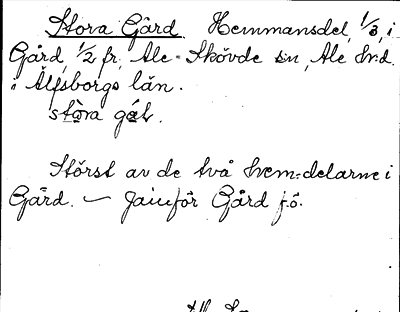 Stora Gård Hemmansdel, 1/3, i
Gård, 1/2 fr, Ale-Skövde sn, Ale hrd.
i Älfsborgs län.
stòra gå̀ḷ.
Störst av de två hem.-delarne i
Gärd. — Jämför Gård f.ö.